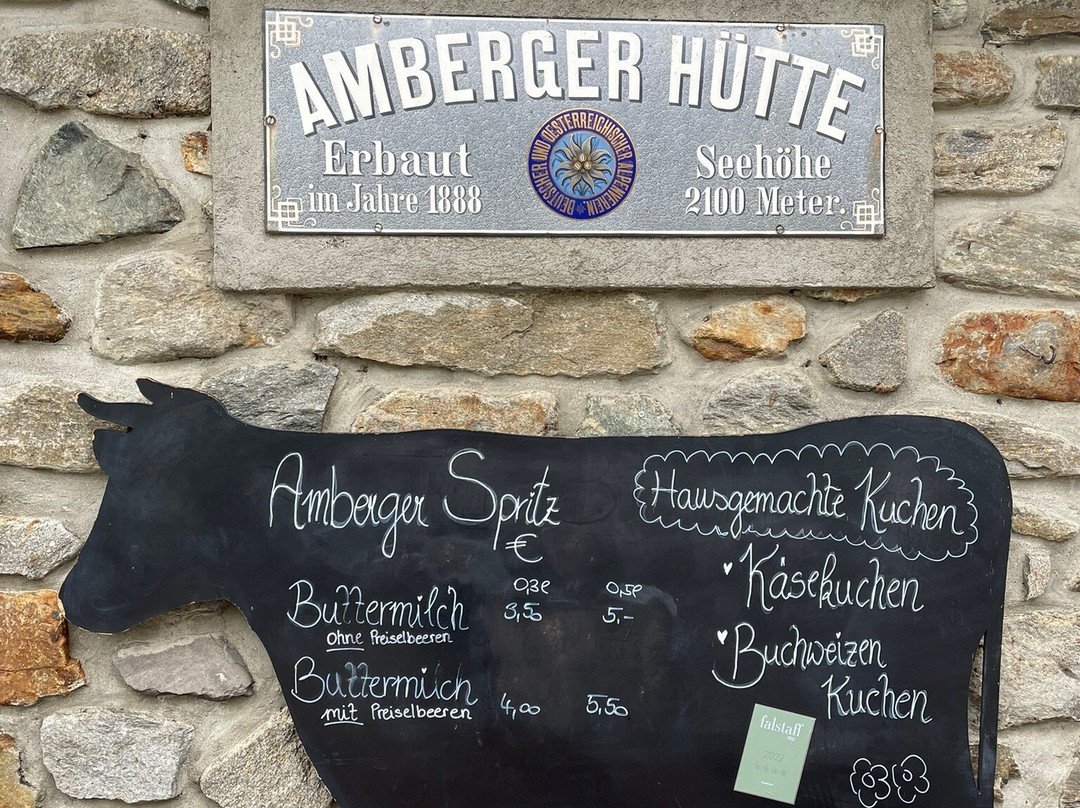 AMBERGER HÜTTE
Erbaut
im Jahre 1888
DEUTSCHER UND OESTERREICHISCHER ALPENVEREIN.
Seehöhe
2100 Meter.
Amberger Spritz
€
0,3l 0,5l
Buttermilch 3,50 5,-
ohne Preiselbeeren
Buttermilch 4,00 5,50
mit Preiselbeeren
Hausgemachte Kuchen
Käsekuchen
Buchweizen
Kuchen
falstaff
2022